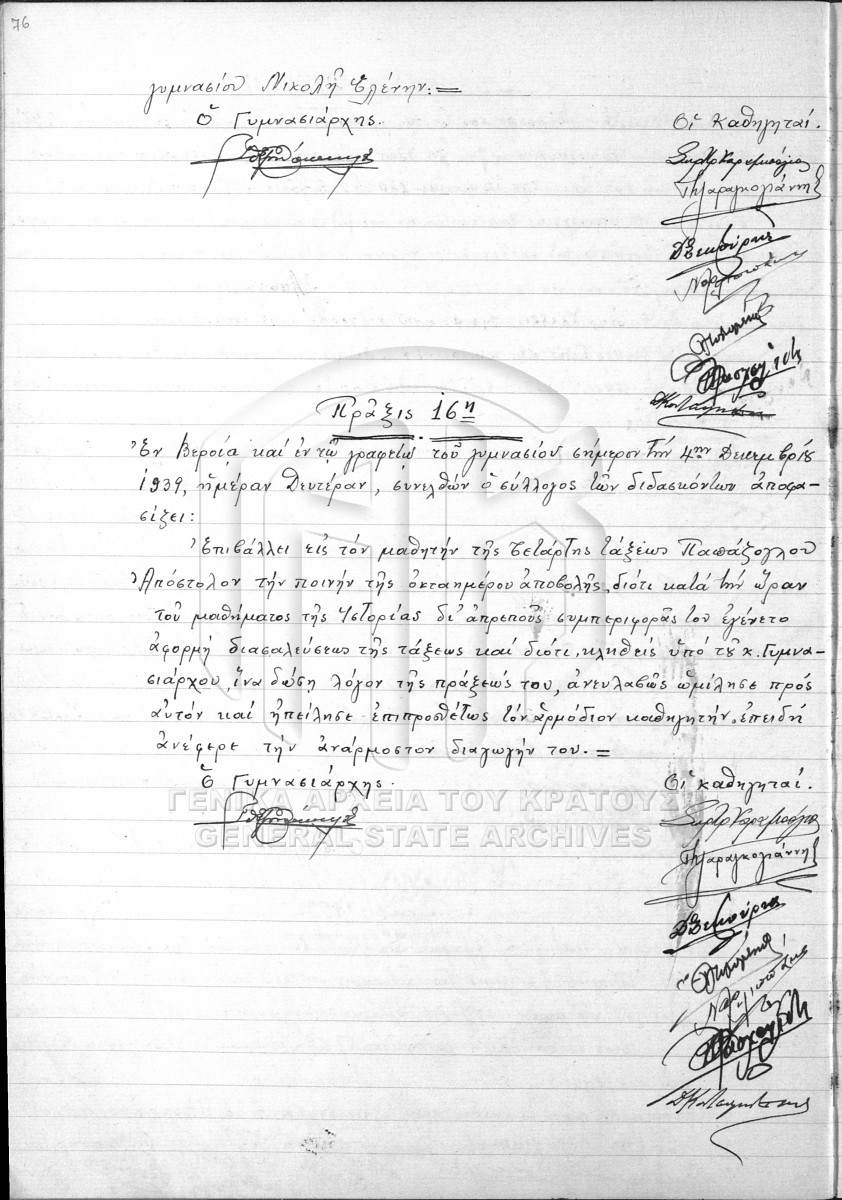 76
γυμνασίου Νικολῆ Ἑλένην.=
Ὁ Γυμνασιάρχης.
Οἱ Καθηγηταί.
Πρᾶξις 16η
Ἐν Βεροίᾳ καὶ ἐν τῷ γραφείῳ τοῦ γυμνασίου σήμερον τὴν 4ην Δεκεμβρίου
1939, ἡμέραν Δευτέραν, συνελθὼν ὁ σύλλογος τῶν διδασκόντων ἀποφα-
σίζει:
Ἐπιβάλλει εἰς τὸν μαθητὴν τῆς τετάρτης τάξεως Παπάζογλου
Ἀπόστολον τὴν ποινὴν τῆς ὀκταημέρου ἀποβολῆς, διότι κατὰ τὴν ὥραν
τοῦ μαθήματος τῆς Ἱστορίας δι' ἀπρεποῦς συμπεριφορᾶς του ἐγένετο
ἀφορμὴ διασαλεύσεως τῆς τάξεως καὶ διότι, κληθεὶς ὑπὸ τοῦ κ. Γυμνα-
σιάρχου, ἵνα δώσῃ λόγον τῆς πράξεώς του, ἀνευλαβῶς ὡμίλησε πρὸς
αὐτὸν καὶ ἠπείλησε ἐπιπροσθέτως τὸν ἁρμόδιον καθηγητήν, ἐπειδὴ
ἀνέφερε τὴν ἀνάρμοστον διαγωγήν του.=
Ὁ Γυμνασιάρχης.
Οἱ καθηγηταί.
ΓΕΝΙΚΑ ΑΡΧΕΙΑ ΤΟΥ ΚΡΑΤΟΥΣ
GENERAL STATE ARCHIVES